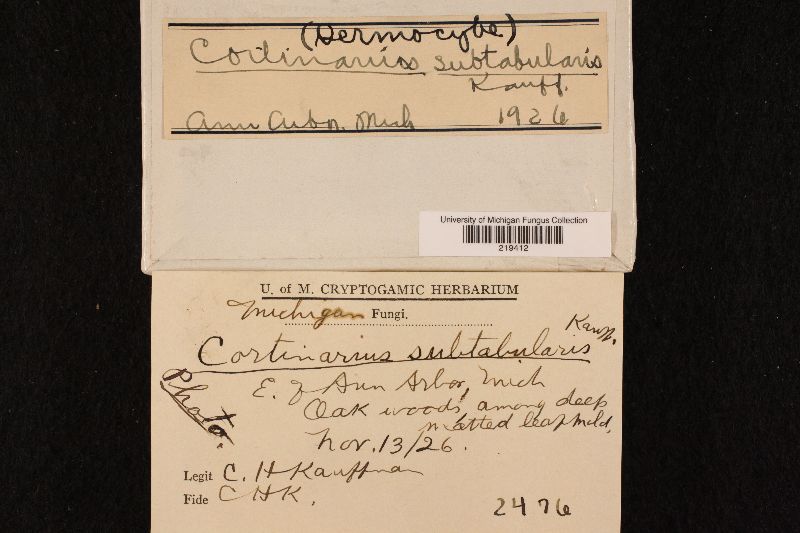 (Dermocybe)
Cortinarius subtabularis
Kauff.
Ann Arbor, Mich 1926
University of Michigan Fungus Collection
219412
U. of M. CRYPTOGAMIC HERBARIUM
Michigan Fungi.
Kauff.
Cortinarius subtabularis
Photo.
E. of Ann Arbor, Mich
Oak woods among deep
matted leaf mold,
Nov. 13/26.
Legit C. H Kauffman
Fide C H K.
2476